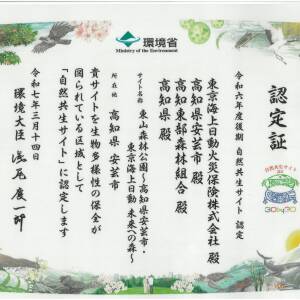 環境省
Ministry of the Environment
認定証
令和六年度後期 自然共生サイト 認定
東京海上日動火災保険株式会社 殿
高知県安芸市 殿
高知東部森林組合 殿
高知県 殿
サイト名称
東山森林公園~高知県安芸市・
東京海上日動 未来への森~
所在地
高知県 安芸市
貴サイトを生物多様性の保全が
図られている区域として
「自然共生サイト」に認定します
令和七年三月十四日
環境大臣 浅尾慶一郎
自然共生サイト
認定
30by30